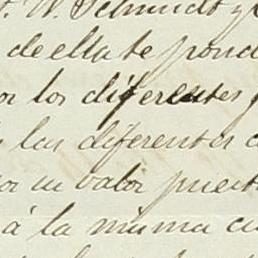 W. Schmidt y
de ella se pond
los diferentes
las diferentes
su valor puest
á la misma cu